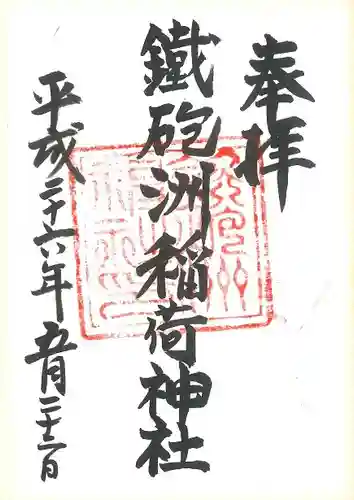 奉拝
鐵砲洲稲荷神社
平成二十六年五月二十三日